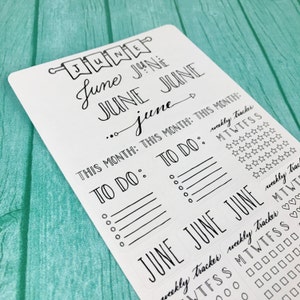 JUNE
June JUNE
JUNE JUNE
june
THIS MONTH: THIS MONTH: THIS MONTH:
TO DO: TO DO:
weekly tracker
M T W T F S S
JUNE JUNE JUNE
weekly tracker weekly tracker weekly tracker
M T W T F S S M T W T F S S